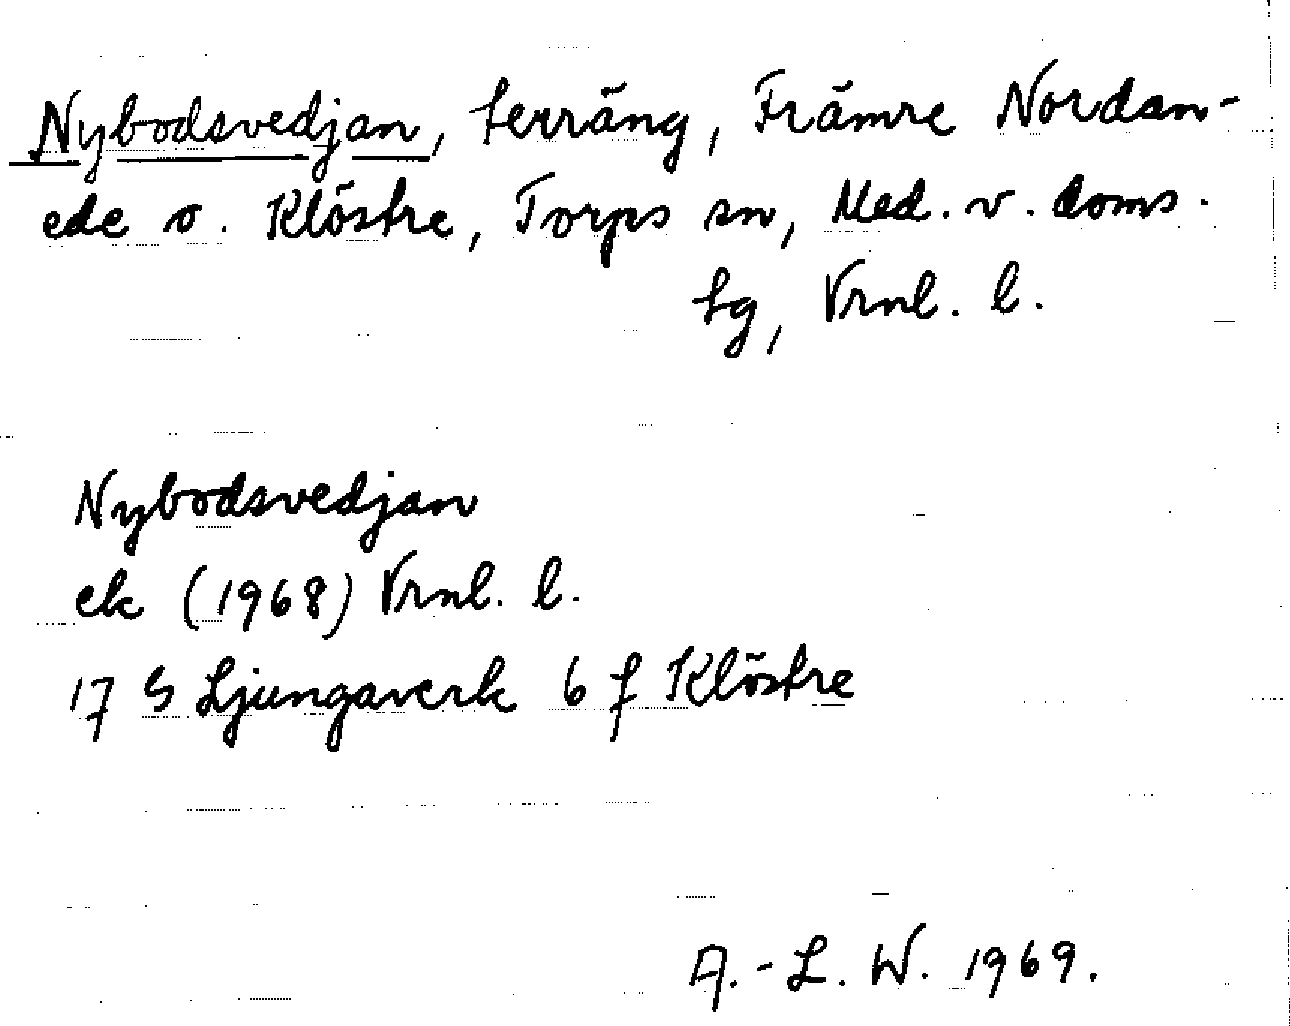 Nybodsvedjan, terräng, Främre Nordan-
ede o. Klöstre, Torps sn, Med. v. doms.
tg, Vrnl. l.
Nybodsvedjan
ek (1968) Vrnl. l.
17 G Ljungaverk 6 f Klöstre
A.-L. W. 1969.